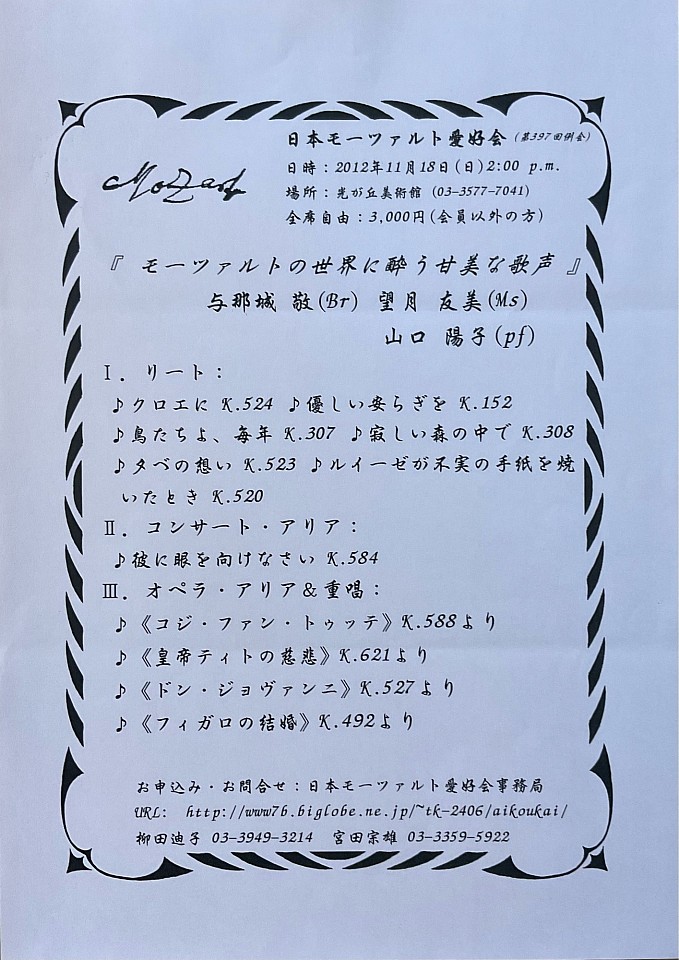 日本モーツァルト愛好会 (第397回例会)
Mozart
日時：2012年11月18日(日)2:00 p.m.
場所：光が丘美術館 (03-3577-7041)
全席自由：3,000円(会員以外の方)
『 モーツァルトの世界に酔う甘美な歌声 』
与那城 敬(Br) 望月 友美(Ms)
山口 陽子(pf)
Ⅰ. リート：
♪クロエに K.524 ♪優しい安らぎを K.152
♪鳥たちよ、毎年 K.307 ♪寂しい森の中で K.308
♪夕べの想い K.523 ♪ルイーゼが不実の手紙を焼
いたとき K.520
Ⅱ. コンサート・アリア：
♪彼に眼を向けなさい K.584
Ⅲ. オペラ・アリア＆重唱：
♪《コジ・ファン・トゥッテ》K.588より
♪《皇帝ティトの慈悲》K.621より
♪《ドン・ジョヴァンニ》K.527より
♪《フィガロの結婚》K.492より
お申込み・お問合せ：日本モーツァルト愛好会事務局
URL: http://www7b.biglobe.ne.jp/~tk-2406/aikoukai/
柳田迪子 03-3949-3214 宮田宗雄 03-3359-5922